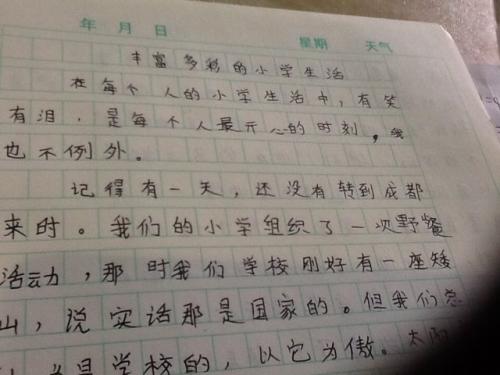 年 月 日 星期 天气
丰富多彩的小学生活
在每个人的小学生活中，有笑
有泪，是每个人最开心的时刻，我
也不例外。
记得有一天，还没有转到成都
来时。我们的小学组织了一次野餐
活动，那时我们学校刚好有一座矮
山，说实话那是国家的。但我们总
是学校的，以它为傲。太阳